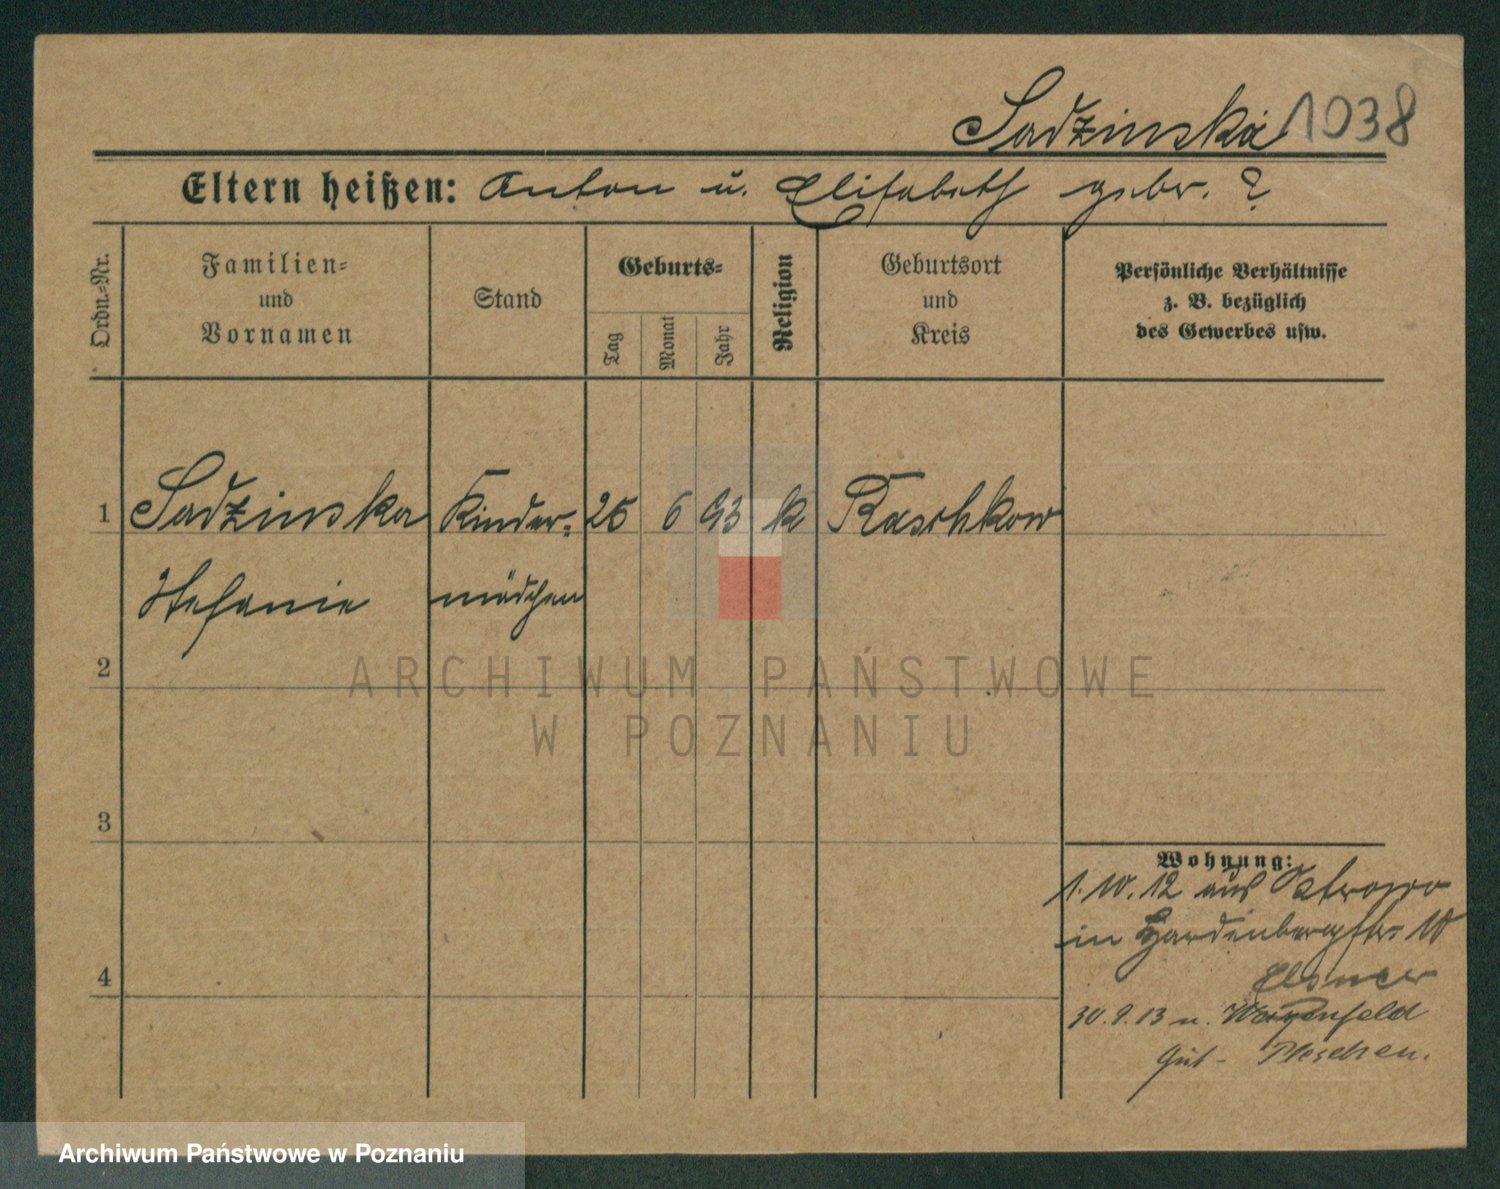 Sadzinska 1038
Eltern heißen: Anton u. Elisabeth gebr. ?
Ordn.-Nr.
Familien-
und
Vornamen
Stand
Geburts-
Tag
Monat
Jahr
Religion
Geburtsort
und
Kreis
Persönliche Verhältnisse
z. B. bezüglich
des Gewerbes usw.
1 Sadzinska Kinder- 26 6 93 k Raschkow
Stefanie mädchen
2
ARCHIWUM PAŃSTWOWE
W POZNANIU
3
Wohnung:
1.10.12 aus Ostrowo
in Hardenbergstr. 10
Elsner
4
30.9.13 n.
Gut - Pleschen.
Archiwum Państwowe w Poznaniu